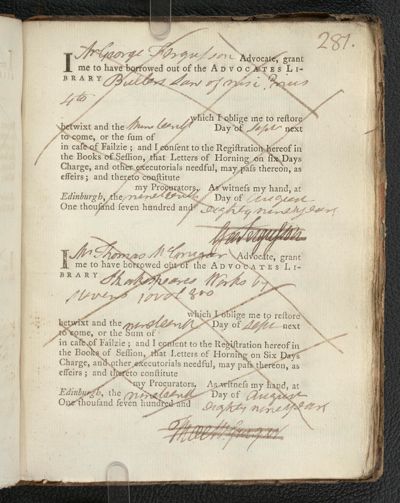 281.
I Mr George Fergusson Advocate, grant
me to have borrowed out of the ADVOCATES LI-
BRARY Bullers Law of nisi Prius
4to
which I oblige me to restore
betwixt and the nineteenth Day of Septr next
to come, or the sum of
in caſe of Failzie; and I conſent to the Regiſtration hereof in
the Books of Seſſion, that Letters of Horning on ſix Days
Charge, and other executorials needful, may paſs thereon, as
effeirs; and thereto conſtitute
my Procurators. As witneſs my hand, at
Edinburgh, the nineteenth Day of August
One thouſand ſeven hundred and eighty nine years
Geo Fergusson
I Mr Thomas Advocate, grant
me to have borrowed out of the ADVOCATES LI-
BRARY Shakespeares Works by
10 vol 8vo
which I oblige me to restore
betwixt and the nineteenth Day of Septr next
to come, or the Sum of
in caſe of Failzie; and I conſent to the Regiſtration hereof in
the Books of Seſſion, that Letters of Horning on Six Days
Charge, and other executorials needful, may paſs thereon, as
effeirs; and thereto conſtitute
my Procurators. As witneſs my hand, at
Edinburgh, the nineteenth Day of August
One thouſand ſeven hundred and eighty nine years